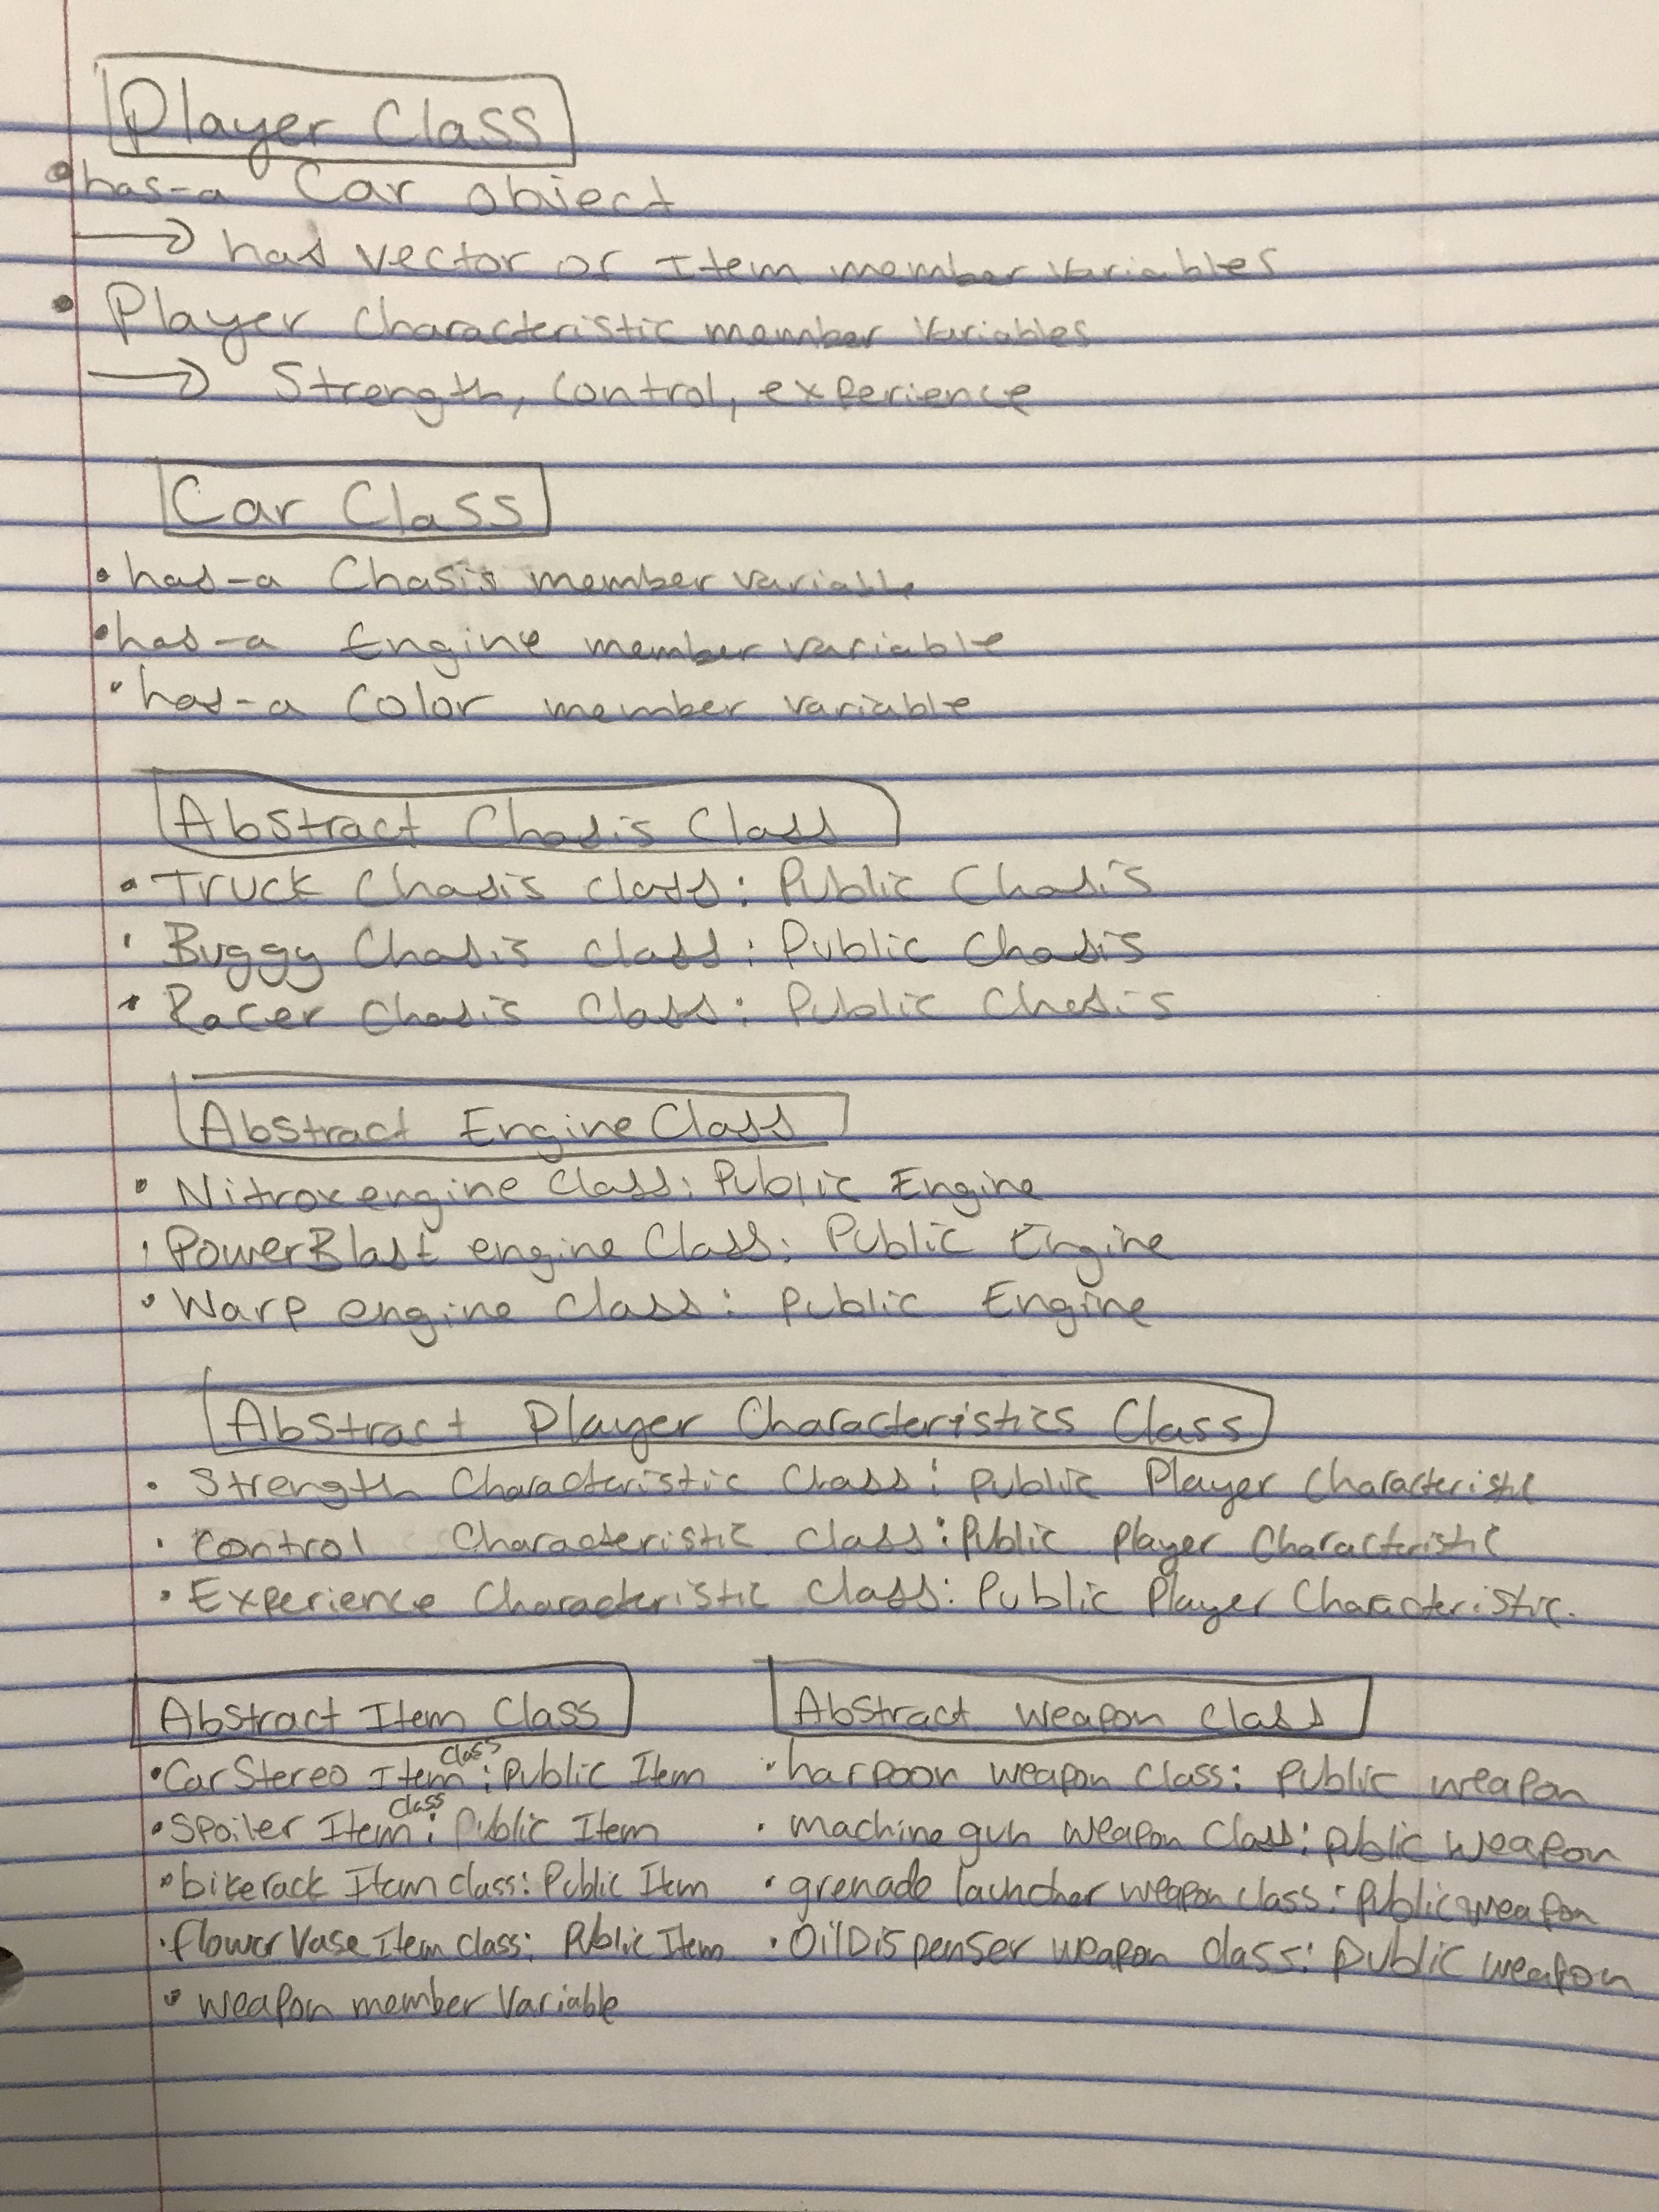 Player Class
• has-a Car object
→ has vector of Item member variables
• Player Characteristic member variables
→ Strength, Control, experience
Car Class
• has-a Chasis member variable
• has-a Engine member variable
• has-a Color member variable
Abstract Chasis Class
• Truck Chasis class: Public Chasis
• Buggy Chasis class: Public Chasis
• Racer Chasis Class: Public Chasis
Abstract Engine Class
• Nitrox engine Class: Public Engine
• PowerBlast engine Class: Public Engine
• Warp engine class: Public Engine
Abstract Player Characteristics Class
• Strength Characteristic Class: Public Player Characteristic
• Control Characteristic class: Public Player Characteristic
• Experience Characteristic Class: Public Player Characteristic.
Abstract Item Class
• Car Stereo Item class: Public Item
• Spoiler Item class: Public Item
• bikerack Item class: Public Item
• flower Vase Item class: Public Item
• weapon member Variable
Abstract weapon class
• harpoon weapon class: Public weapon
• machine gun weapon Class: Public weapon
• grenade launcher weapon class: Public weapon
• OilDispenser weapon class: Public weapon